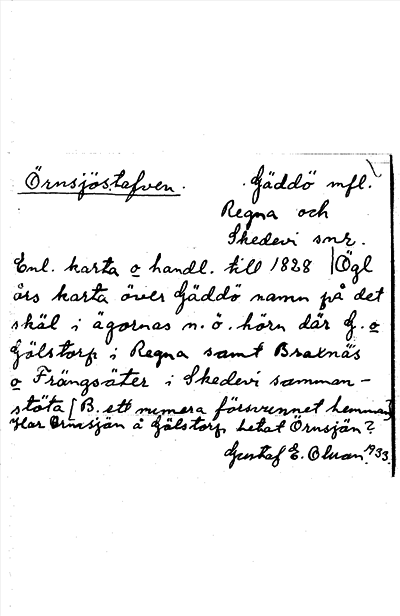 Örnsjöstafven. Gäddö mfl.
Regna och
Skedevi snr.
Enl. karta o handl. till 1828 Ögl
års karta över Gäddö namn på det
skäl i ägornas n. ö. hörn där G. o
Gölstorp i Regna samt Braxnäs
o Frängsäter i Skedevi samman-
stöta [B. ett numera försvunnet hemman]
Har Ormsjön å Gölstorp hetat Örnsjön?
Gustaf E. 1933.